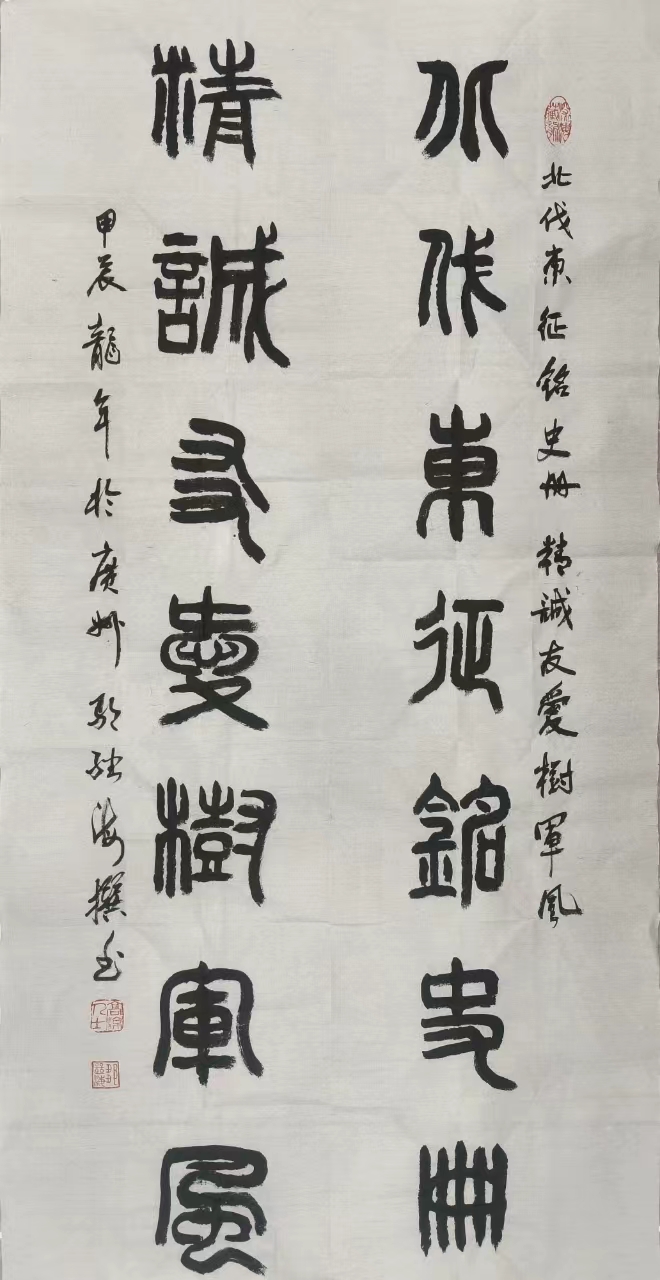 北伐東征銘史册 精誠友愛樹軍風
北伐東征銘史册
精誠友愛樹軍風
甲辰龍年於廣州 海撰書